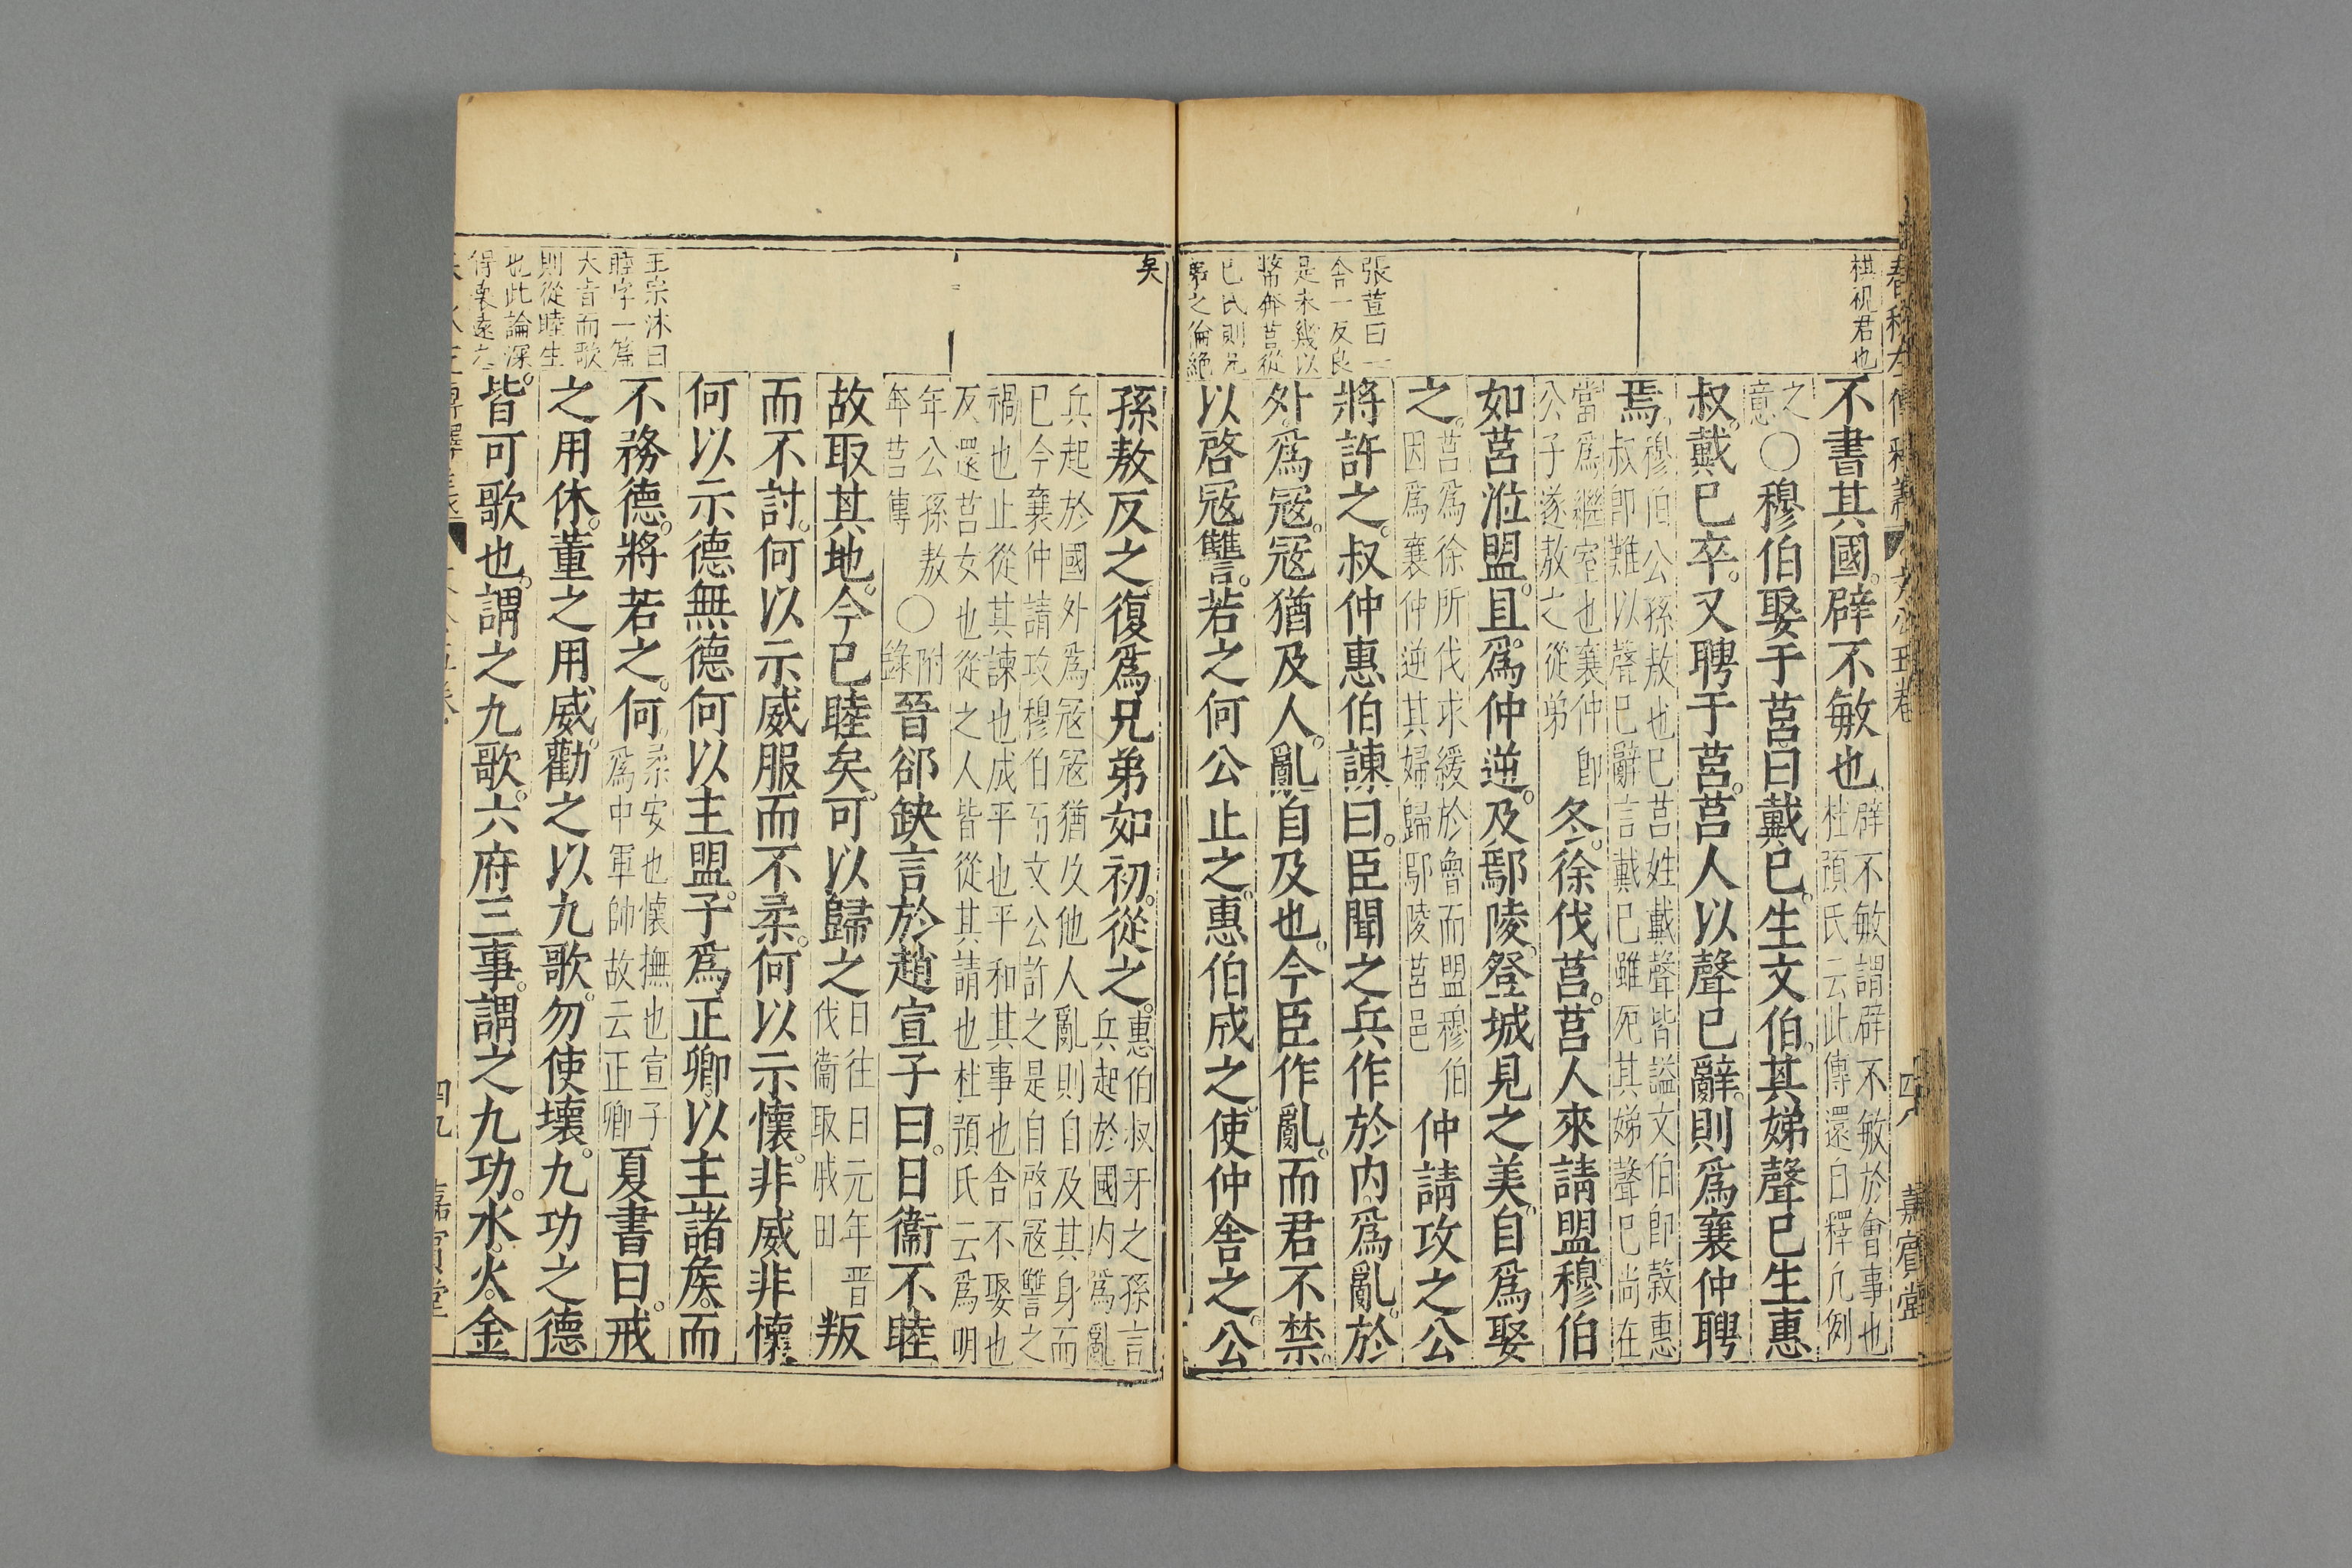 棋視君也
不書其國。辟不敏也。辟不敏謂辟不敏於會事也杜預氏云此傳還自釋凡例
之意○穆伯娶于莒曰戴已。生文伯。其娣聲已生惠
叔。戴已卒。又聘于莒。莒人以聲已辭。則爲襄仲聘
焉。穆伯公孫敖也已莒姓戴聲皆謚文伯即榖惠叔即難以聲已辭言戴已雖死其娣聲已尚在
當爲繼室也襄仲即公子遂敖之從弟 冬。徐伐莒。莒人來請盟。穆伯
如莒涖盟。且爲仲逆。及鄢陵。登城見之美。自爲娶
之。莒爲徐所伐求緩於魯而盟穆伯因爲襄仲逆其婦歸鄢陵莒邑 仲請攻之公
張萱曰一舍一反良是未幾以幣奔莒從已氏則兄弟之倫絶
將許之。叔仲惠伯諫曰。臣聞之兵作於内。爲亂。於
外。爲寇。寇猶及人。亂自及也。今臣作亂。而君不禁。
以啓寇讐。若之何公止之。惠伯成之。使仲舍之。公
矣
孫敖反之。復爲兄弟如初。從之。惠伯叔牙之孫言兵起於國内爲亂
兵起於國外爲寇寇猶及他人亂則自及其身而已今襄仲請攻穆伯而文公許之是自啓寇讐之
禍也止從其諫也成平也平和其事也舍不娶也反還莒女也從之人皆從其請也杜預氏云爲明
年公孫敖奔莒傳○附錄晉郤缺言於趙宣子曰。日衞不睦
故取其地。今已睦矣。可以歸之。日往日元年晋伐衞取戚田 叛
而不討。何以示威服而不柔。何以示懷。非威非懷。
何以示德無德何以主盟。子爲正卿。以主諸侯。而
王宗沐曰睦字一篇大旨而歌則從睦生也此論深得柔遠之
不務德。將若之。何。柔安也懷撫也宣子爲中軍帥故云正卿 夏書曰。戒
之用休。董之用威。勸之以九歌。勿使壞。九功之德
皆。可歌也。謂之九歌。六府三事。謂之九功。水。火。金
四九 嘉賓堂